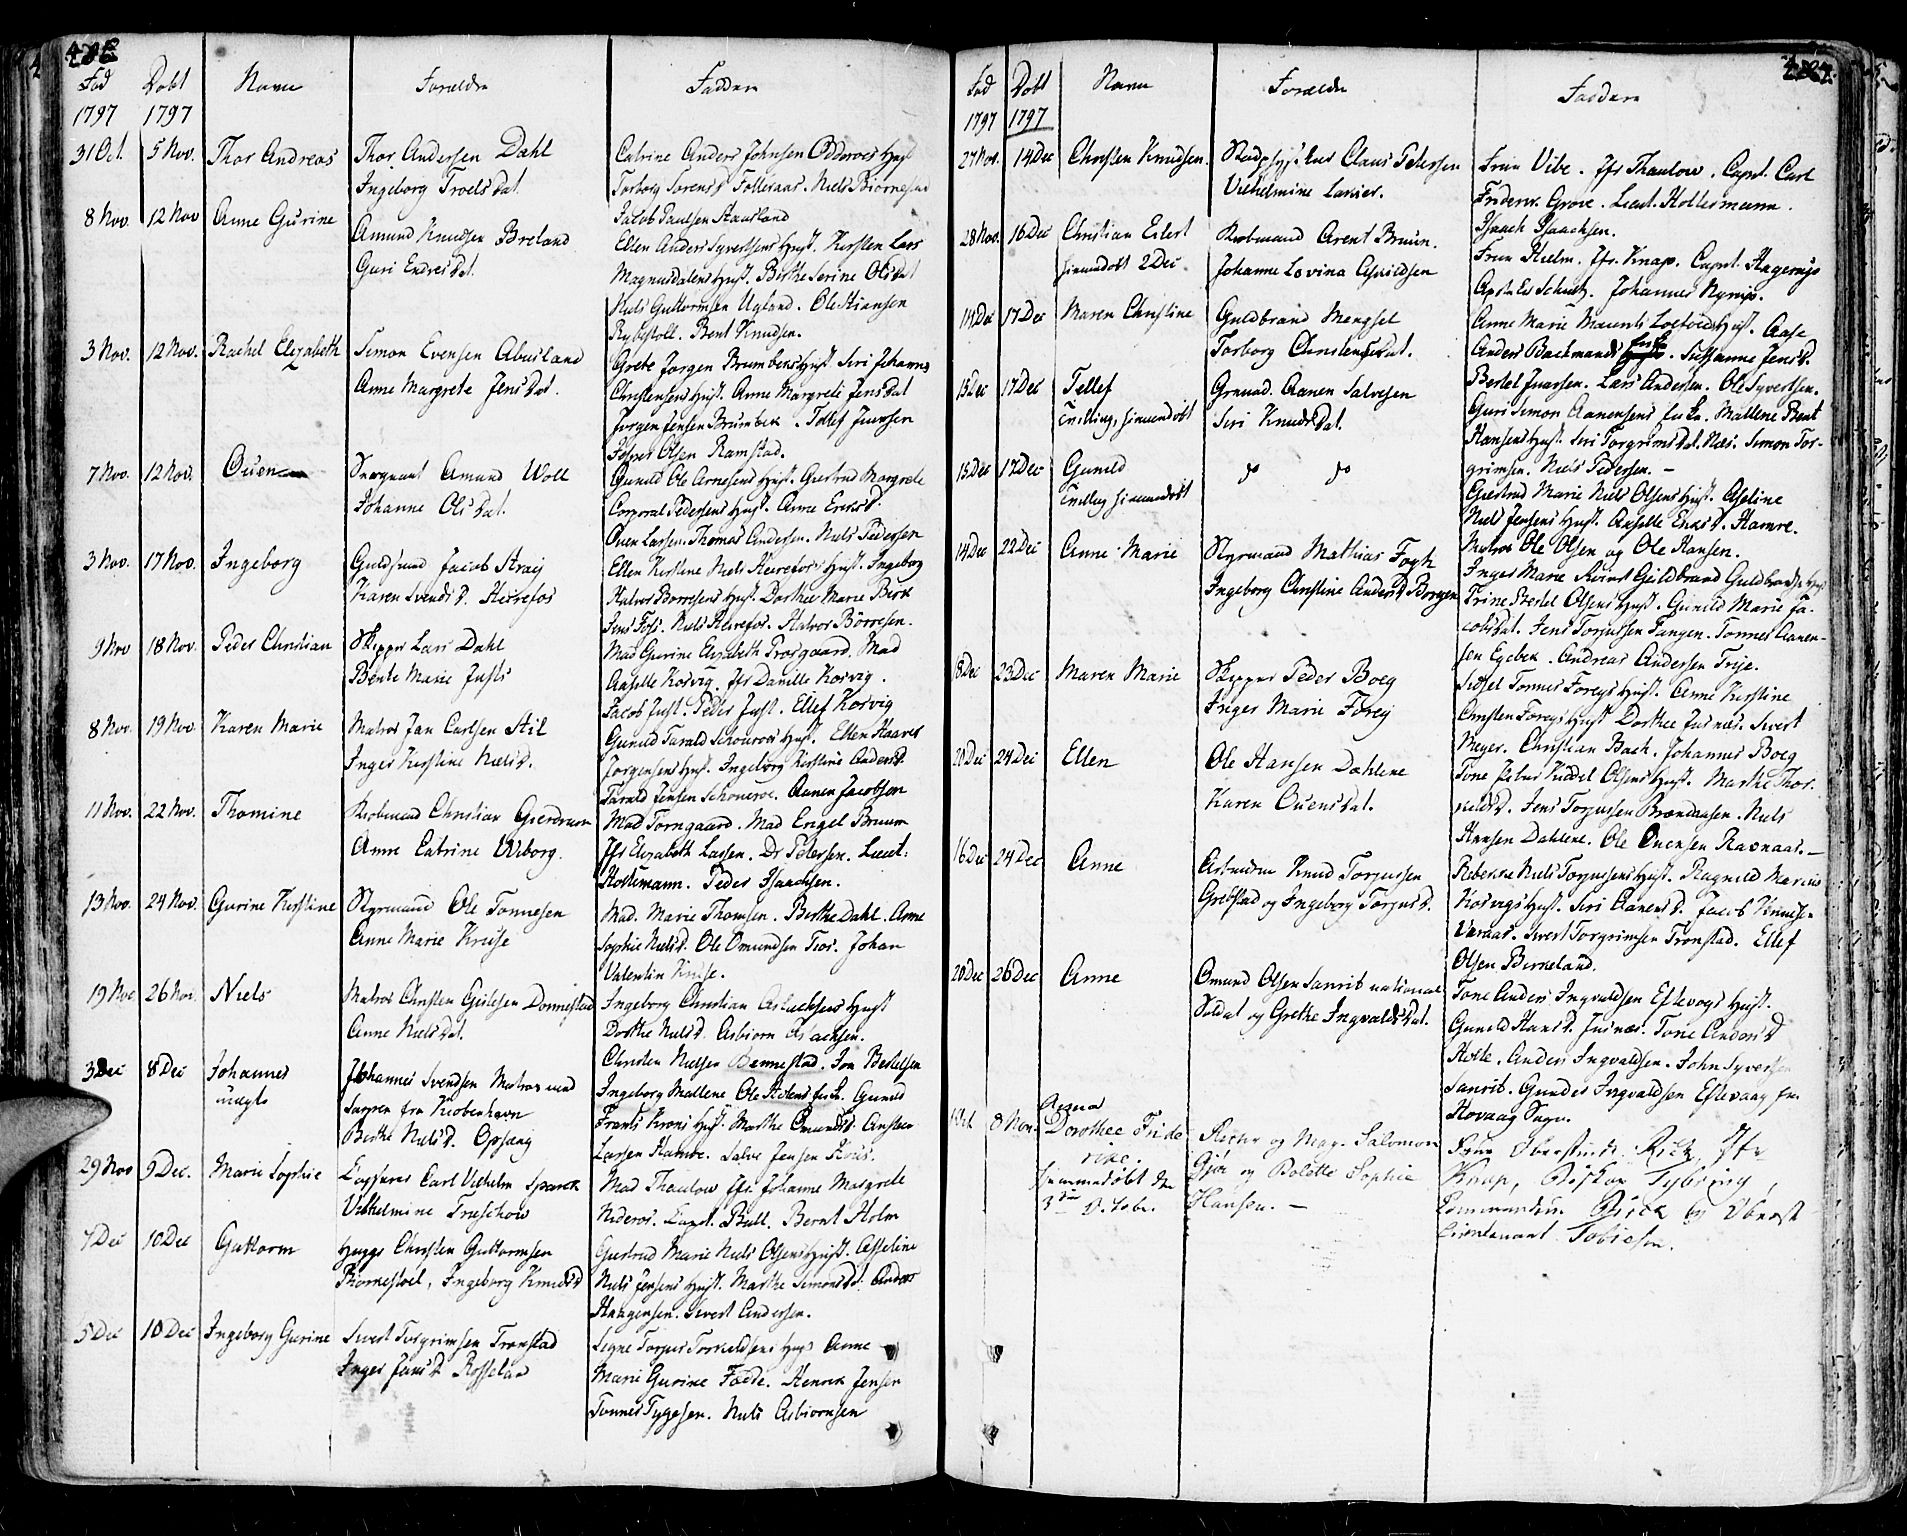 Fød Døbt Navn Forældre Faddere
1797 1797
31 Oct. 5 Nov. Thor Andreas Thor Andersen Dahl
Ingeborg Troelsdat.
Catrine Anders Johnsen Odderoes Hust
Torborg Sorensd Folleraas. Niels Biornestad
Jacob Paulsen Stausland
8 Nov. 12 Nov Anne Gurine Amund Knudsen Breland
Guri Endresdat.
Ellen Anders Syvertsens Hust. Kirsten Lars
Magnusdalens Hust. Birthe Serine Olsdat
Niels Guttormsen Ugland. Ole Hansen
Rybestoll. Bent Knudsen.
3 Nov. 12 Nov. Rachel Elizabeth Simon Evensen Abusland
Anne Margrete Jensdat.
Grete Jorgen Brumbeks Hust. Siri Johannes
Christensens Hust. Anne Margrete Jensdat
Jørgen Jensen Brumbek. Tollef Jversen
Jesper Olsen Ramstad.
7 Nov. 12 Nov. Ouen Amund Woll
Johanne Olsdat.
Gunild Ole Arnesens Hust. Giertrud Margrete
Corporal Pedersens Hust. Anne Ericsd.
Ouen Larsen. Thomas Andersen. Niels Pedersen
3 Nov. 17 Nov. Ingeborg Guldsmed Jacob Straij
Karen Svends d. Heirefos
Ellen Kirstine Niels Heirefos Hust. Ingeborg
Halvor Børresens Hust. Dorthee Marie Birk
Jens Foss. Niels Heirefos. Halvor Börresen.
9 Nov 18 Nov. Peder Christian Skipper Lars Dahl
Bente Marie Justs
Mad Gurine Elizabeth Prosgaard. Mad
Axselle Korvig. Jfr Danille Korvig.
Jacob Just. Peder Just. Ellef Korvig
8 Nov. 19 Nov. Karen Marie Matros Jan Carlsen Stil
Inger Kirstine Nielsd.
Gunild Tarald Schoueroes Hust. Ellen Haavor
Jorgensens Hust. Ingeborg Kirstine Andersd.
Tarald Jensen Schoueroe. Aanen Jacobsen
11 Nov. 22 Nov. Thomine Kiobmand Christian Gierdrum
Anne Catrine Wiborg.
Mad Torngaard. Mad Engel Bruun
Jfr Elizabeth Lassen. Dr Petersen. Lieut:
Holtemann. Peder Isaachsen.
13 Nov. 24 Nov. Gurine Kirstine Styrmand Ole Tonnesen
Anne Marie Kruse
Mad. Marie Thomsen. Berthe Dahl. Anne
Sophie Nielsd. Ole Omundsen Tros. Johan
Valentin Kruse.
19 Nov 26 Nov. Niels Matros Christen Geilesen Donnestad
Anne Nielsdat.
Ingeborg Christian Aslachsens Hust
Dorthe Nielsd. Asbiorn Aslachsen.
Christen Nielsen Bennestad. Jon Bertelsen
3 Dec 8 Dec Johannes
uægte
Johannes Svendsen Matros
fra Kiøbenhavn
Birthe Nielsd. Opsang
Ingeborg Mallene Ole Holens Enke. Gunild
Frants Krons Hust. Marthe Omundsd. Christen
Larsen Hamre. Salve Jensen Kous.
29 Nov 9 Dec. Marie Sophie Carl Vilhelm Sparck
Vilhelmine Trueschow
Mad Thaulow Jfr. Johanne Margrete
Nideros. Capt. Bull. Bernt Holm
7 Dec 10 Dec Guttorm Christen Guttormsen
Ingeborg Knudsd.
Giertrud Marie Niels Olsens Hust. Asseline
Niels Jensens Hust. Marthe Simonsd. Anders
Haagensen. Sivert Andersen.
5 Dec 10 Dec Ingeborg Gurine Sivert Torgrimsen Tronstad
Inger Jansd. Rosselan
Signe Torjus Torkeldsens Hust Anne
Marie Gurine Fædde. Henrik Jensen
Tonnes Tygesen. Niels Asbiornsen
Fød Døbt Navn Forældre Faddere
1797 1797
27 Nov. 14 Dec Christen Knudsen. Stadphysikus Claus Petersen
Vilhelmine Lasson.
Frue Vibe. Jfr Thaulow. Capt. Carl
Friderik Grove. Lieut. Holtermann.
Isaach Isaachsen.
28 Nov. 16 Dec Christian Eilert
hjemmedøbt 2 Dec
Kiobmand Arent Bruun.
Johanne Lovina
Frue Hielm. Jfr. Knap. Capt. Hagerup
Johannes Nyrup.
14 Dec 17 Dec Maren Christine Guldbrand Mengsel
Torborg Christensdat.
Anne Marie Hust. Aase
Anders Backmands Enke. Sussanne Jensd.
Bertel Jversen. Lars Andersen. Ole Syvertsen.
15 Dec 17 Dec Tellef
Tvilling, hjemmedøbt
Aanen Salvesen
Siri Knudsdat.
Guri Simon Aanensens Enke. Mallene Bent
Hansens Hust. Siri Torgrimsdat. Næs. Simon Tor-
grimsen. Niels Pedersen. —
15 Dec 17 Dec Gunild
Tvilling hjemmedøbt
do do
Giertrud Marie Niels Olsens Hust. Aseline
Niels Jensens Hust. Axselle Ericsd. Hamre.
Matros Ole Olsen og Ole Hansen.
14 Dec 22 Dec Anne Marie Styrmand Mathias Fogh
Ingeborg Christine Andersd Borgen
Inger Marie Guldbrand Guldbrands Hust
Trine Bertel Olsens Hust. Gunild Marie Ja-
cobsdat. Jens Torjussen Tangen. Tonnes Aanen-
sen Egebek. Andreas Andersen Trije.
18 Dec 23 Dec Maren Marie Skipper Peder Boeg
Inger Marie Forey
Sidsel Tonnes Foreys Hust. Anne Kirstine
Christen Foreys Hust Dorthee Jusnæs. Sivert
Meyer. Christian Bach. Johannes Boeg
21 Dec 24 Dec Ellen Ole Hansen Dahlene
Karen Ouensdat.
Tone Peter Kiddel Olsens Hust. Marthe Thor-
Jens Torjussen Brændaasen. Niels
Hansen Dahlene. Ole Ouensen Ravnaas. —
16 Dec 24 Dec Anne Knud Torjussen
Grebstad og Ingeborg Torjusd.
Rebekke Niels Torjussens Hust. Ragnild Marius
Korvigs Hust. Siri Aanensd. Jacob Knudsen
Varaas. Sivert Torgrimsen Tronstad. Ellef
Olsen Birkeland.
20 Dec 26 Dec Anne Omund Olsen Sanrib national
Soldat og Grethe Ingvaldsdat.
Tone Anders Ingvaldsen Eftevogs Hust.
Gunild Hansd. Jusnæs. Tone Andersd
Holte. Anders Ingvaldsen. John Syvertsen
Sanrib. Gunder Ingvaldsen Eftevaag fra
Hovaag Sogn.
8 Nov.
Dorothee Fride
rike.
hjemmedøbt den
3die Octobr.
Rector og Mag. Salomon
og Bolette Sophie
Hansen. —
Frue Rick, Jfr
Knap, Biskop Tybring,
Commandeur Rick og Oberst
Lieutenant Tobiesen.